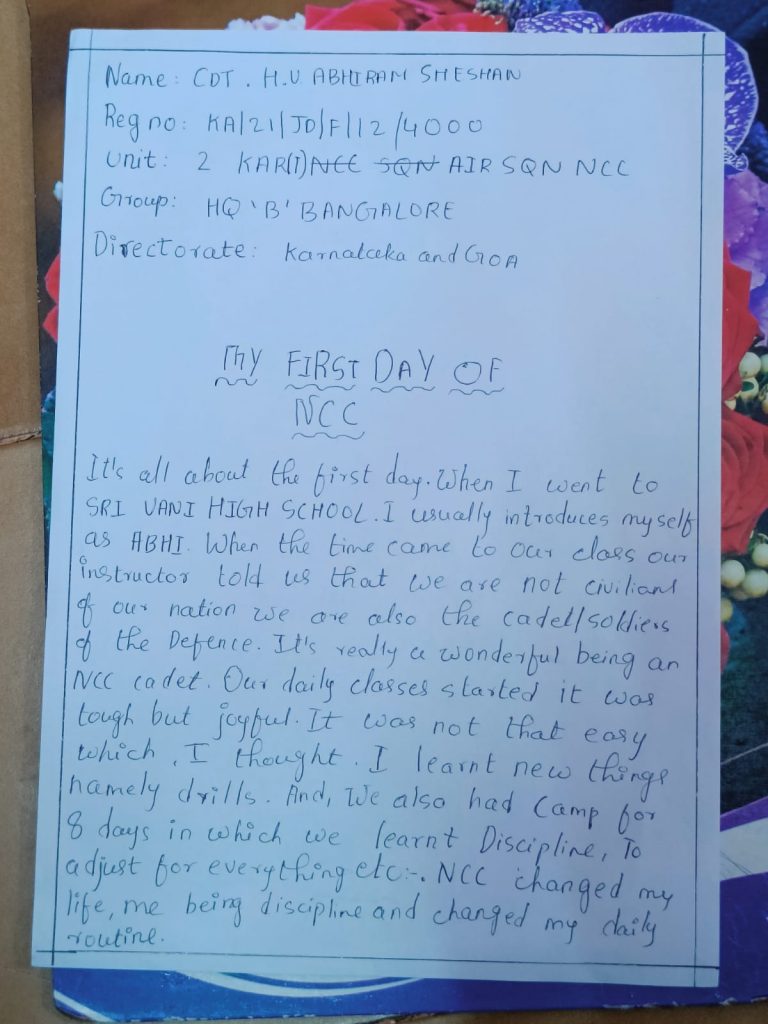 Name: CDT. H.V ABHIRAM SHESHAN
Reg no: KA/21/JD/F/12/4000
Unit: 2 KAR(I) NCC SQN AIR SQN NCC
Group: HQ 'B' BANGALORE
Directorate: Karnataka and GOA
MY FIRST DAY OF
NCC
It's all about the first day. When I went to
SRI VANI HIGH SCHOOL. I usually introduces myself
as ABHI. When the time came to our class our
instructor told us that we are not civilians
of our nation we are also the cadet/soldiers
of the Defence. It's really a wonderful being an
NCC cadet. Our daily classes started it was
tough but joyful. It was not that easy
which, I thought. I learnt new things
namely drills. And, We also had Camp for
8 days in which we learnt Discipline, To
adjust for everything etc:-. NCC changed my
life, me being discipline and changed my daily
routine.